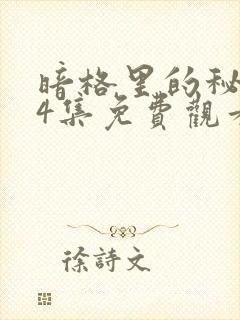 暗格里的秘
4集免費觀
徐詩文